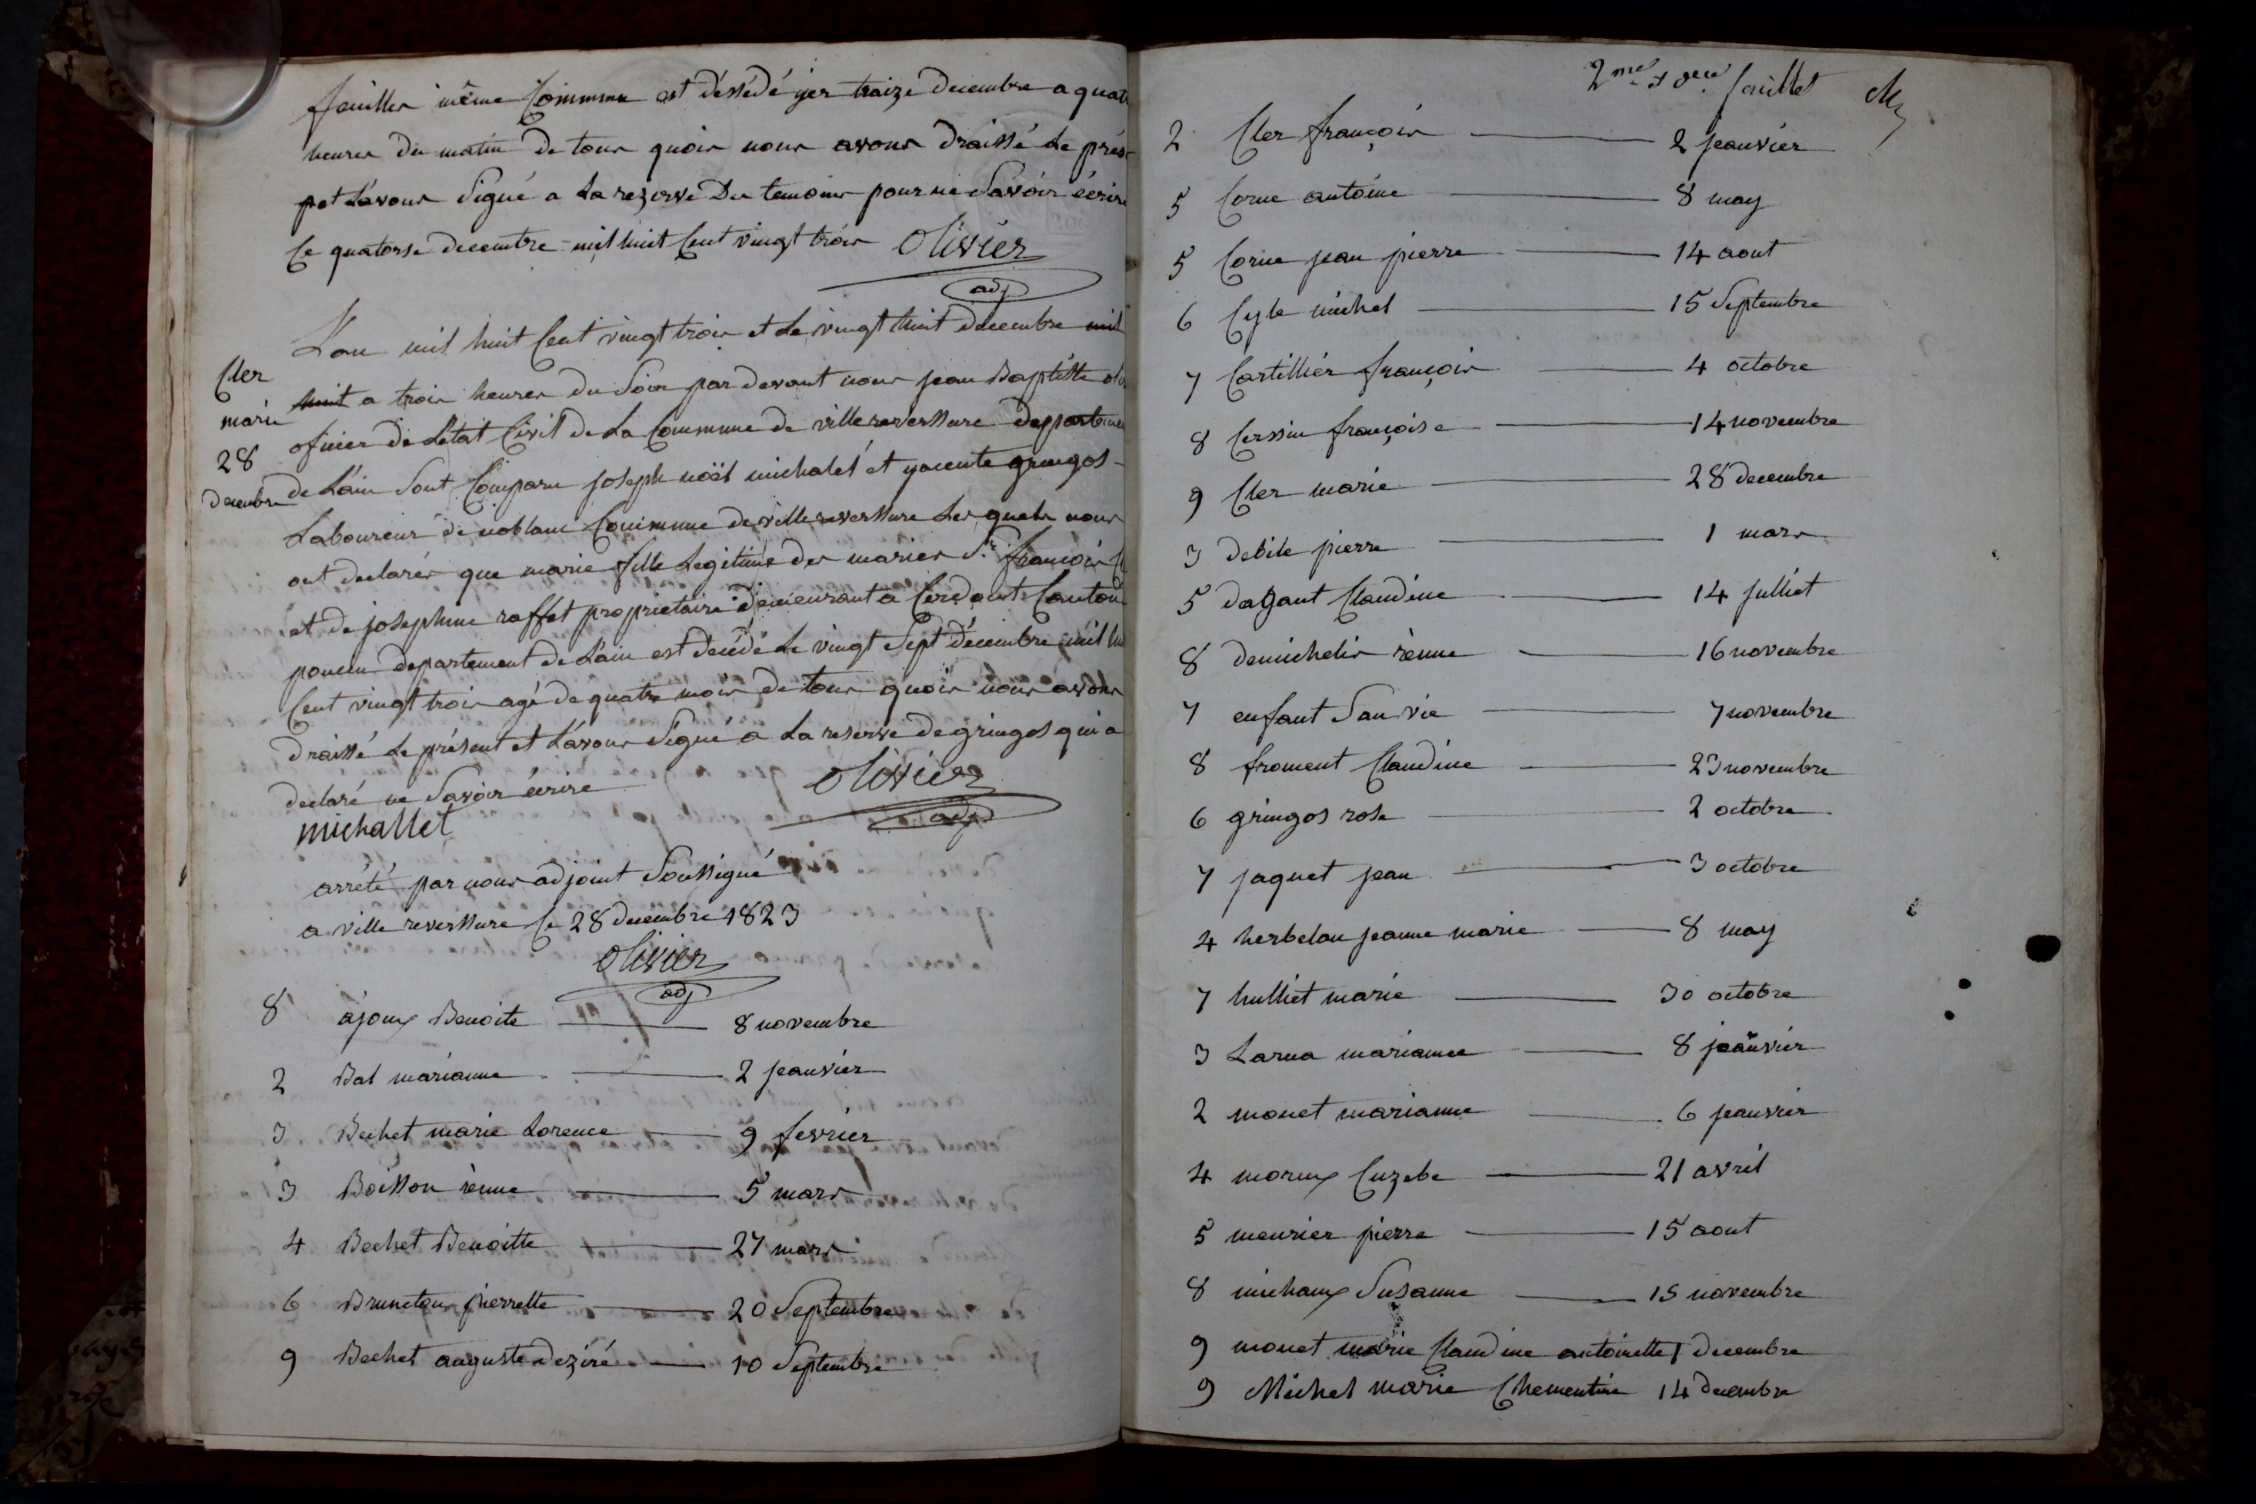 feuiller même Commune est déssédé yer traize decembre a quat
heures du matin de tous quoir nous avons draissé le prés
pet L'avons Signé a La rezerve Des temoins pour ne Savoir écrire
Ce quatorse decembre mil huit Cent vingt trois Olivier
adj
L'an mil huit Cent vingt trois et Le vingt huit decembre mil
Cler
marie
28
decembre
huit a trois heures du Soir par devant nous jean Baptiste oli
oficier de L'etat Civil de La Commune de villereverssure departemen
de L'ain Sont Comparu joseph noël michalet et yacente gringos
Laboureur de noblans Commune de villereverssure Les quels nous
ont declarés que marie fille Legitime des mariés S.r françois Cl
et de josephine raffet proprietaire demeurant a Cerdont Canton
poncin departement de L'ain est décédé Le vingt Sept décembre mil hu
Cent vingt trois agé de quatre mois de tous quoir nous avons
draissé Le présent et L'avons Signé a La reserve de gringos qui a
declaré ne Savoir écrire Olivier
adj
michallet
arrêté par nous adjoint Soussigné
a villereverssure Ce 28 decembre 1823
Olivier
adj
8 ajoux Benoite 8 novembre
2 Bal marianne 2 jeanvier
3 Bechet marie Lorence 9 fevrier
3 Boisson rènne 5 mars
4 Bechet Benoitte 27 mars
6 Bruneton pierrette 20 Septembre
9 Bechet auguste deziré 10 Septembre
2me et dere feuillet
2 Cler françois 2 jeanvier
5 Corne antoine 8 may
5 Corne jean pierre 14 aout
6 Cyle michel 15 Septembre
7 Cartillier françois 4 octobre
8 Cerssin françoise 14 novembre
9 Cler marie 28 decembre
3 debile pierre 1 mars
5 dagant Claudine 14 julliet
8 demichelis rènne 16 novembre
7 enfant San vie 7 novembre
8 froment Claudine 23 novembre
6 gringos rose 2 octobre
7 jaquet jean 3 octobre
4 herbelan jeanne marie 8 may
7 hulliet marie 30 octobre
3 Larna marianne 8 jeanvier
2 monet marianne 6 jeanvier
4 morux Cuzebe 21 avril
5 meurier pierre 15 aout
8 michaux Susanne 15 novembre
9 monet marie Claudine antoinette 1 decembre
9 Michel marie Chementine 14 decembre